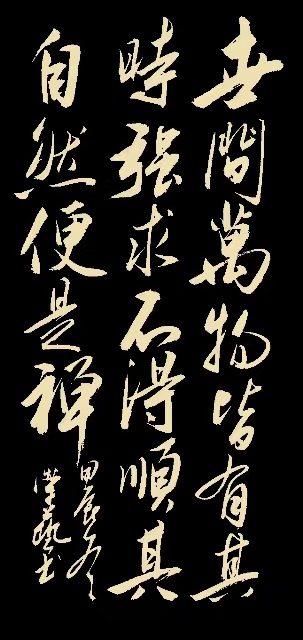 世間萬物皆有其
時强求不得順其
自然便是禅
甲辰冬